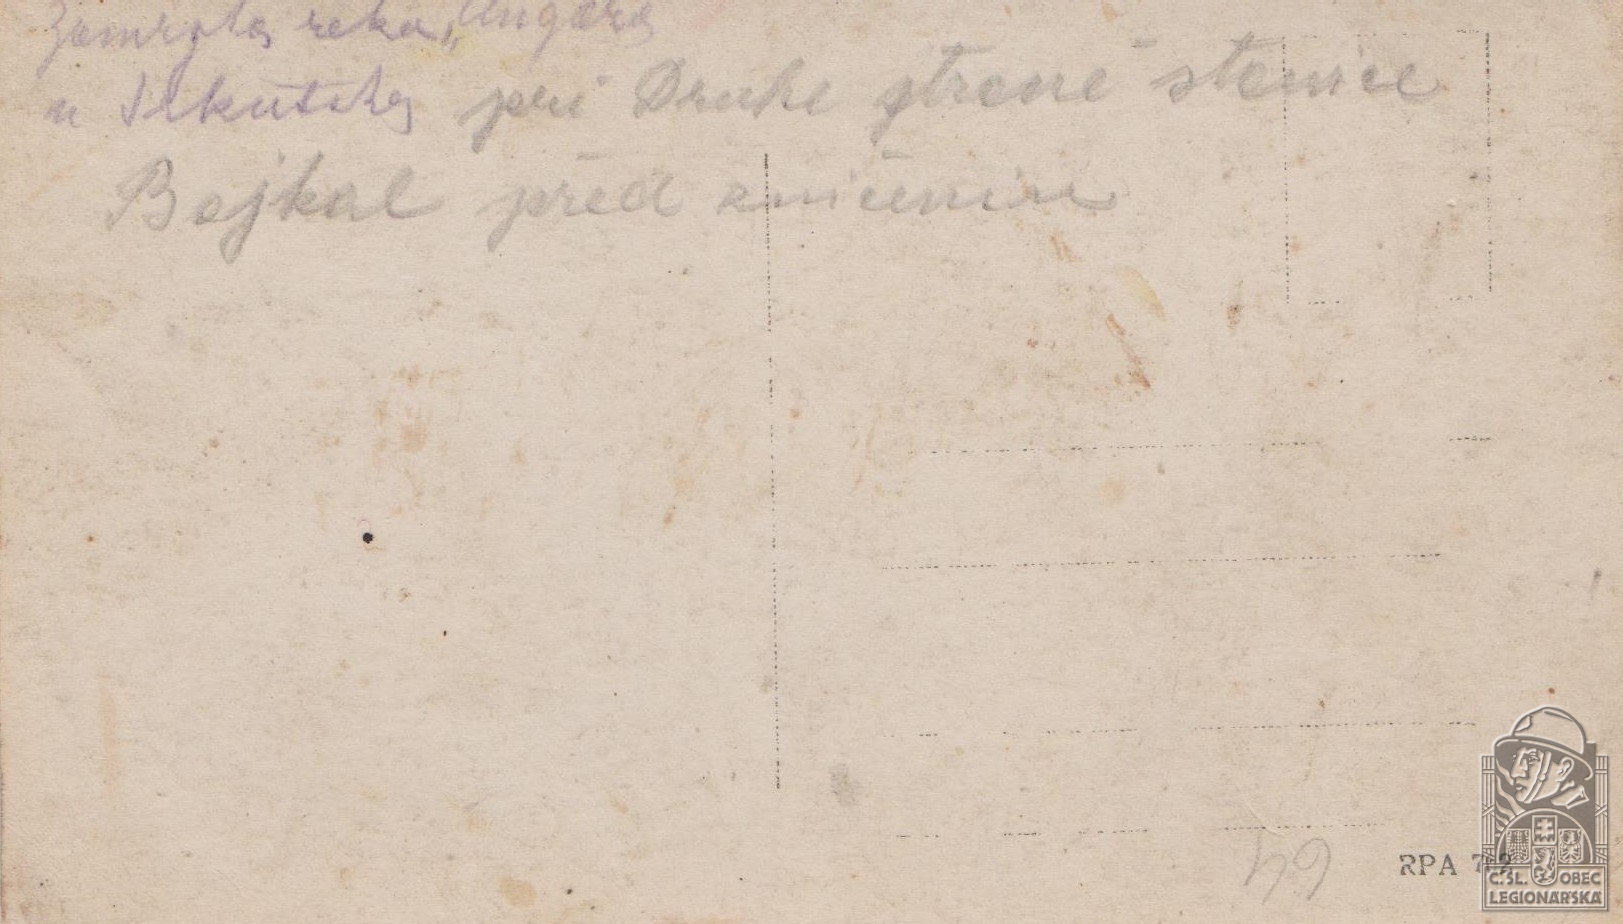 Zamrzla reka „Ungara
u Irkutska pri Druhe strane stanice
Bajkal před zničenim
64
RPA 7
Č. SL. OBEC
LEGIONÁŘSKÁ